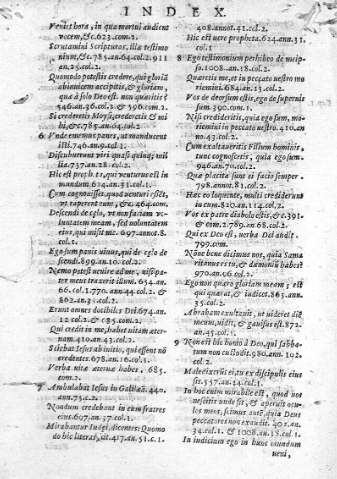 INDEX.
Venit hora, in qua mortui audient
vocem, &c. 623. com. 2.
Scrutamini Scripturas, illa testimo
nium, &c. 785. an. 64. col. 2. 911
an. 25. col. 2.
Quomodo potestis credere, qui gloriã
abinuicem accipitis, & gloriam,
quæ à solo Deo est non quæritis?
546. an. 36. col. 2 & 596. com. 2.
Si crederetis Moysi, crederetis & mi
hi, &c. 785. an. 64. col. 2.
6 Vnde ememus panes, ut manducent
isti. 746. an. 9. col. 1.
Discubuerunt viri quasi quinq; mil
lia. 737. an. 28. col. 2.
Hic est proph. ta, qui venturus est in
mundum. 614. an. 31. col. 1.
Cum cognouisset, quod venturi essẽt,
vt raperent eum, &c. 464. com.
Descendi de cœlo, vt non faciam vo
luntatem meam, sed voluntatem
eius, qui misit me. 697. annot. 8.
col.
Ego sum panis viuus, qui de cœlo de
scendi. 899. an. 10. col. 2.
Nemo potest uenire ad me, nisi pa
ter meus traxerit illum. 654. an.
66. col. 1. 770. ann. 44. col. 2. &
862. an. 3. col. 2.
Erunt omnes docibiles Dei. 674. an.
12. col. 2. & 685. com. 2.
Qui credit in me, habet uitam æter-
nam. 410. an. 43. col. 2.
Sciebat Iesus ab initio, qui essent nõ
credentes. 678. an. 16. col. 1.
Verba vitæ æternæ habes. 685.
com. 2.
7 Ambulabat Iesus in Galilæã. 440.
ann. 73. c. 2.
Nondum credebant in eum fratres
eius. 607. an. 37. col. 1.
Mirabantur Iudæi, dicentes: Quomo
do hic literas scit. 417. an. 51. c. 1.
408. annot. 41. col. 2.
Hic est uere propheta. 624. ann. 31.
col. 1
8 Ego testimonium perhibeo de meip-
so. 1008. an. 18. col. 2.
Quæretis me, et in peccato uestro mo
riemini. 684. an. 23. col. 2.
Vos de deorsum estis, ego de supernis
sum. 390. com. 1.
Nisi credideritis, quia ego sum, mo-
riemini in peccato uestro. 410. an
no. 43. col. 2.
Cum exaltaueritis Filium hominis,
tunc cognoscetis, quia ego sum.
946. an. 70. col. 2.
Quæ placita sunt ei facio semper.
798. annot. 81. col. 2.
Hæc eo loquente, multi crediderunt
in eum. 820. an. 114. col. 2.
Vos ex patre diabolo estis, &c. 391.
& com. 2. 789. an. 68. col. 2.
Qui ex Deo est, uerba Dei audit.
799. com.
Nõne bene dicimus nos, quia Sama
ritanus es tu, & dæmoniũ habes?
970. an. 96. col. 2.
Ego non quæro gloriam meam; est
qui quærat, & iudicet. 865. ann.
35. col. 2.
Abraham exultauit, ut uideret diẽ
meum, uidit, & gauisus est. 872.
an. 45. col. 1.
9 Non est hic homo à Deo, qui sabba-
tum non custodit. 980. ann. 102.
col. 2.
Maledixerũt ei, tu discipulus eius
sis. 557. an. 14. col. 1.
In hoc enim mirabile est, quod uos
nescitis unde sit, & aperuit ocu-
los meos, scimus autẽ, quia Deus
peccatores non exaudit. 405. an.
34. col. 1. & 1008. an. 18. col. 1
In iudicium ego in hunc mundum
ueni,